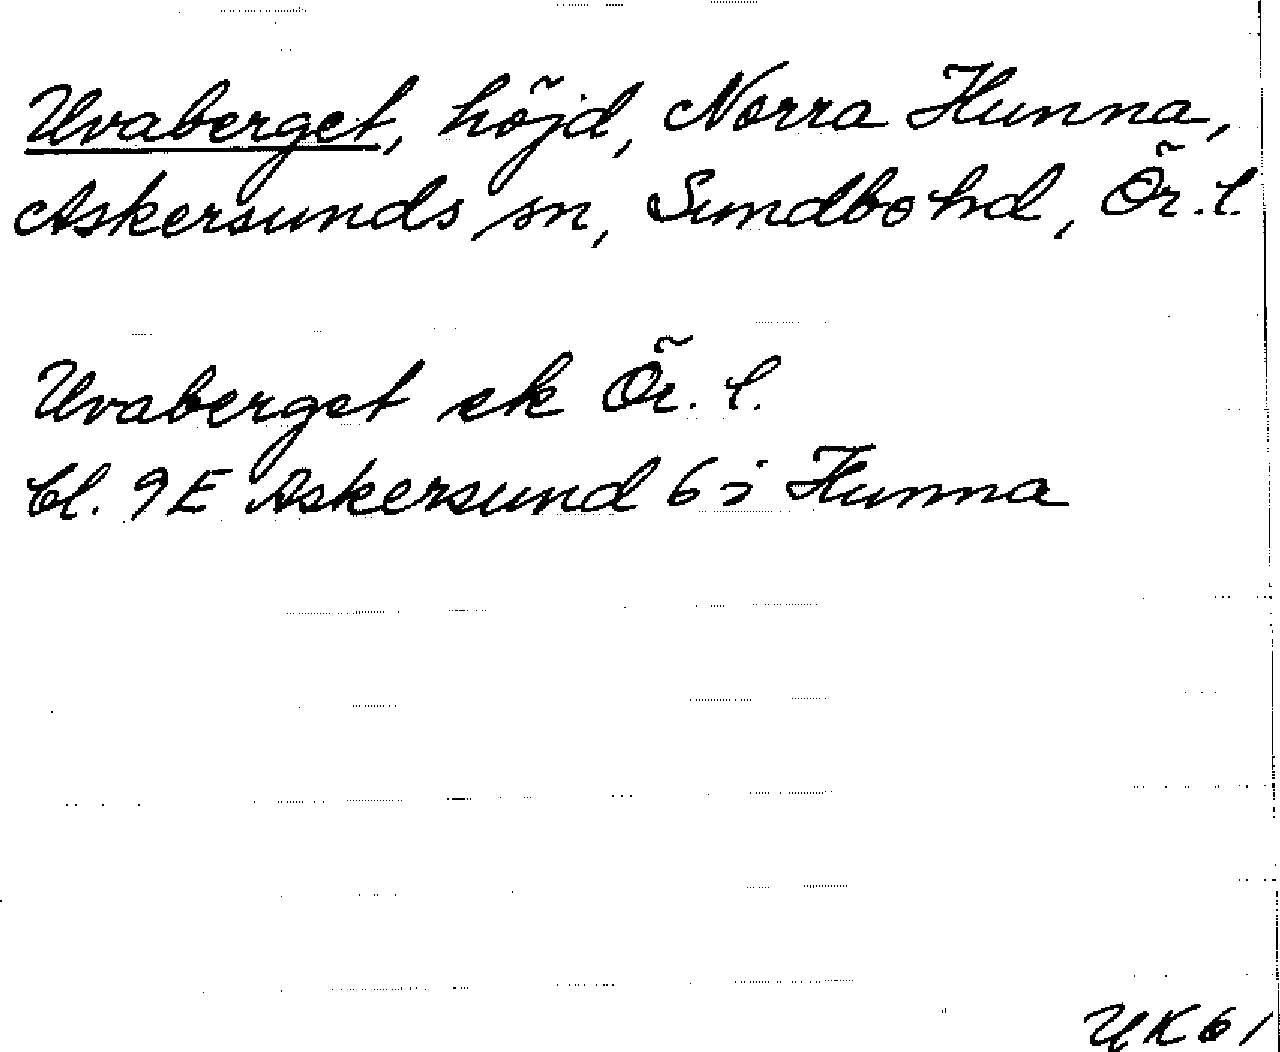 Uvaberget, höjd, Norra Hunna,
Askersunds sn, Sundbo hd, Ör. l.
Uvaberget ek Ör. l.
bl. 9E Askersund 6 i Hunna
YK61